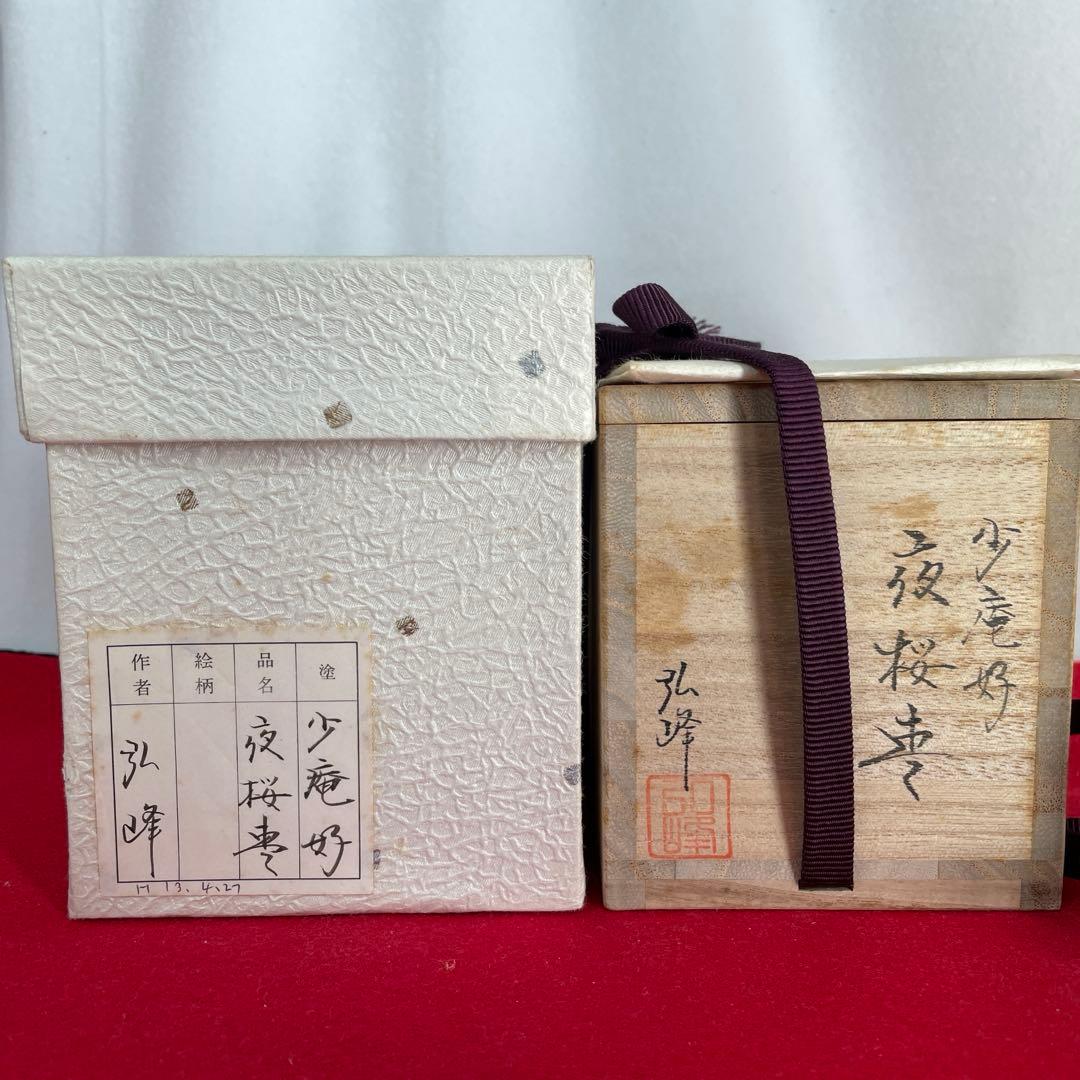 塗
少庵好
品名
夜桜棗
絵柄
作者
弘峰
H 13.4.27
少庵好
夜桜棗
弘峰
弘峰